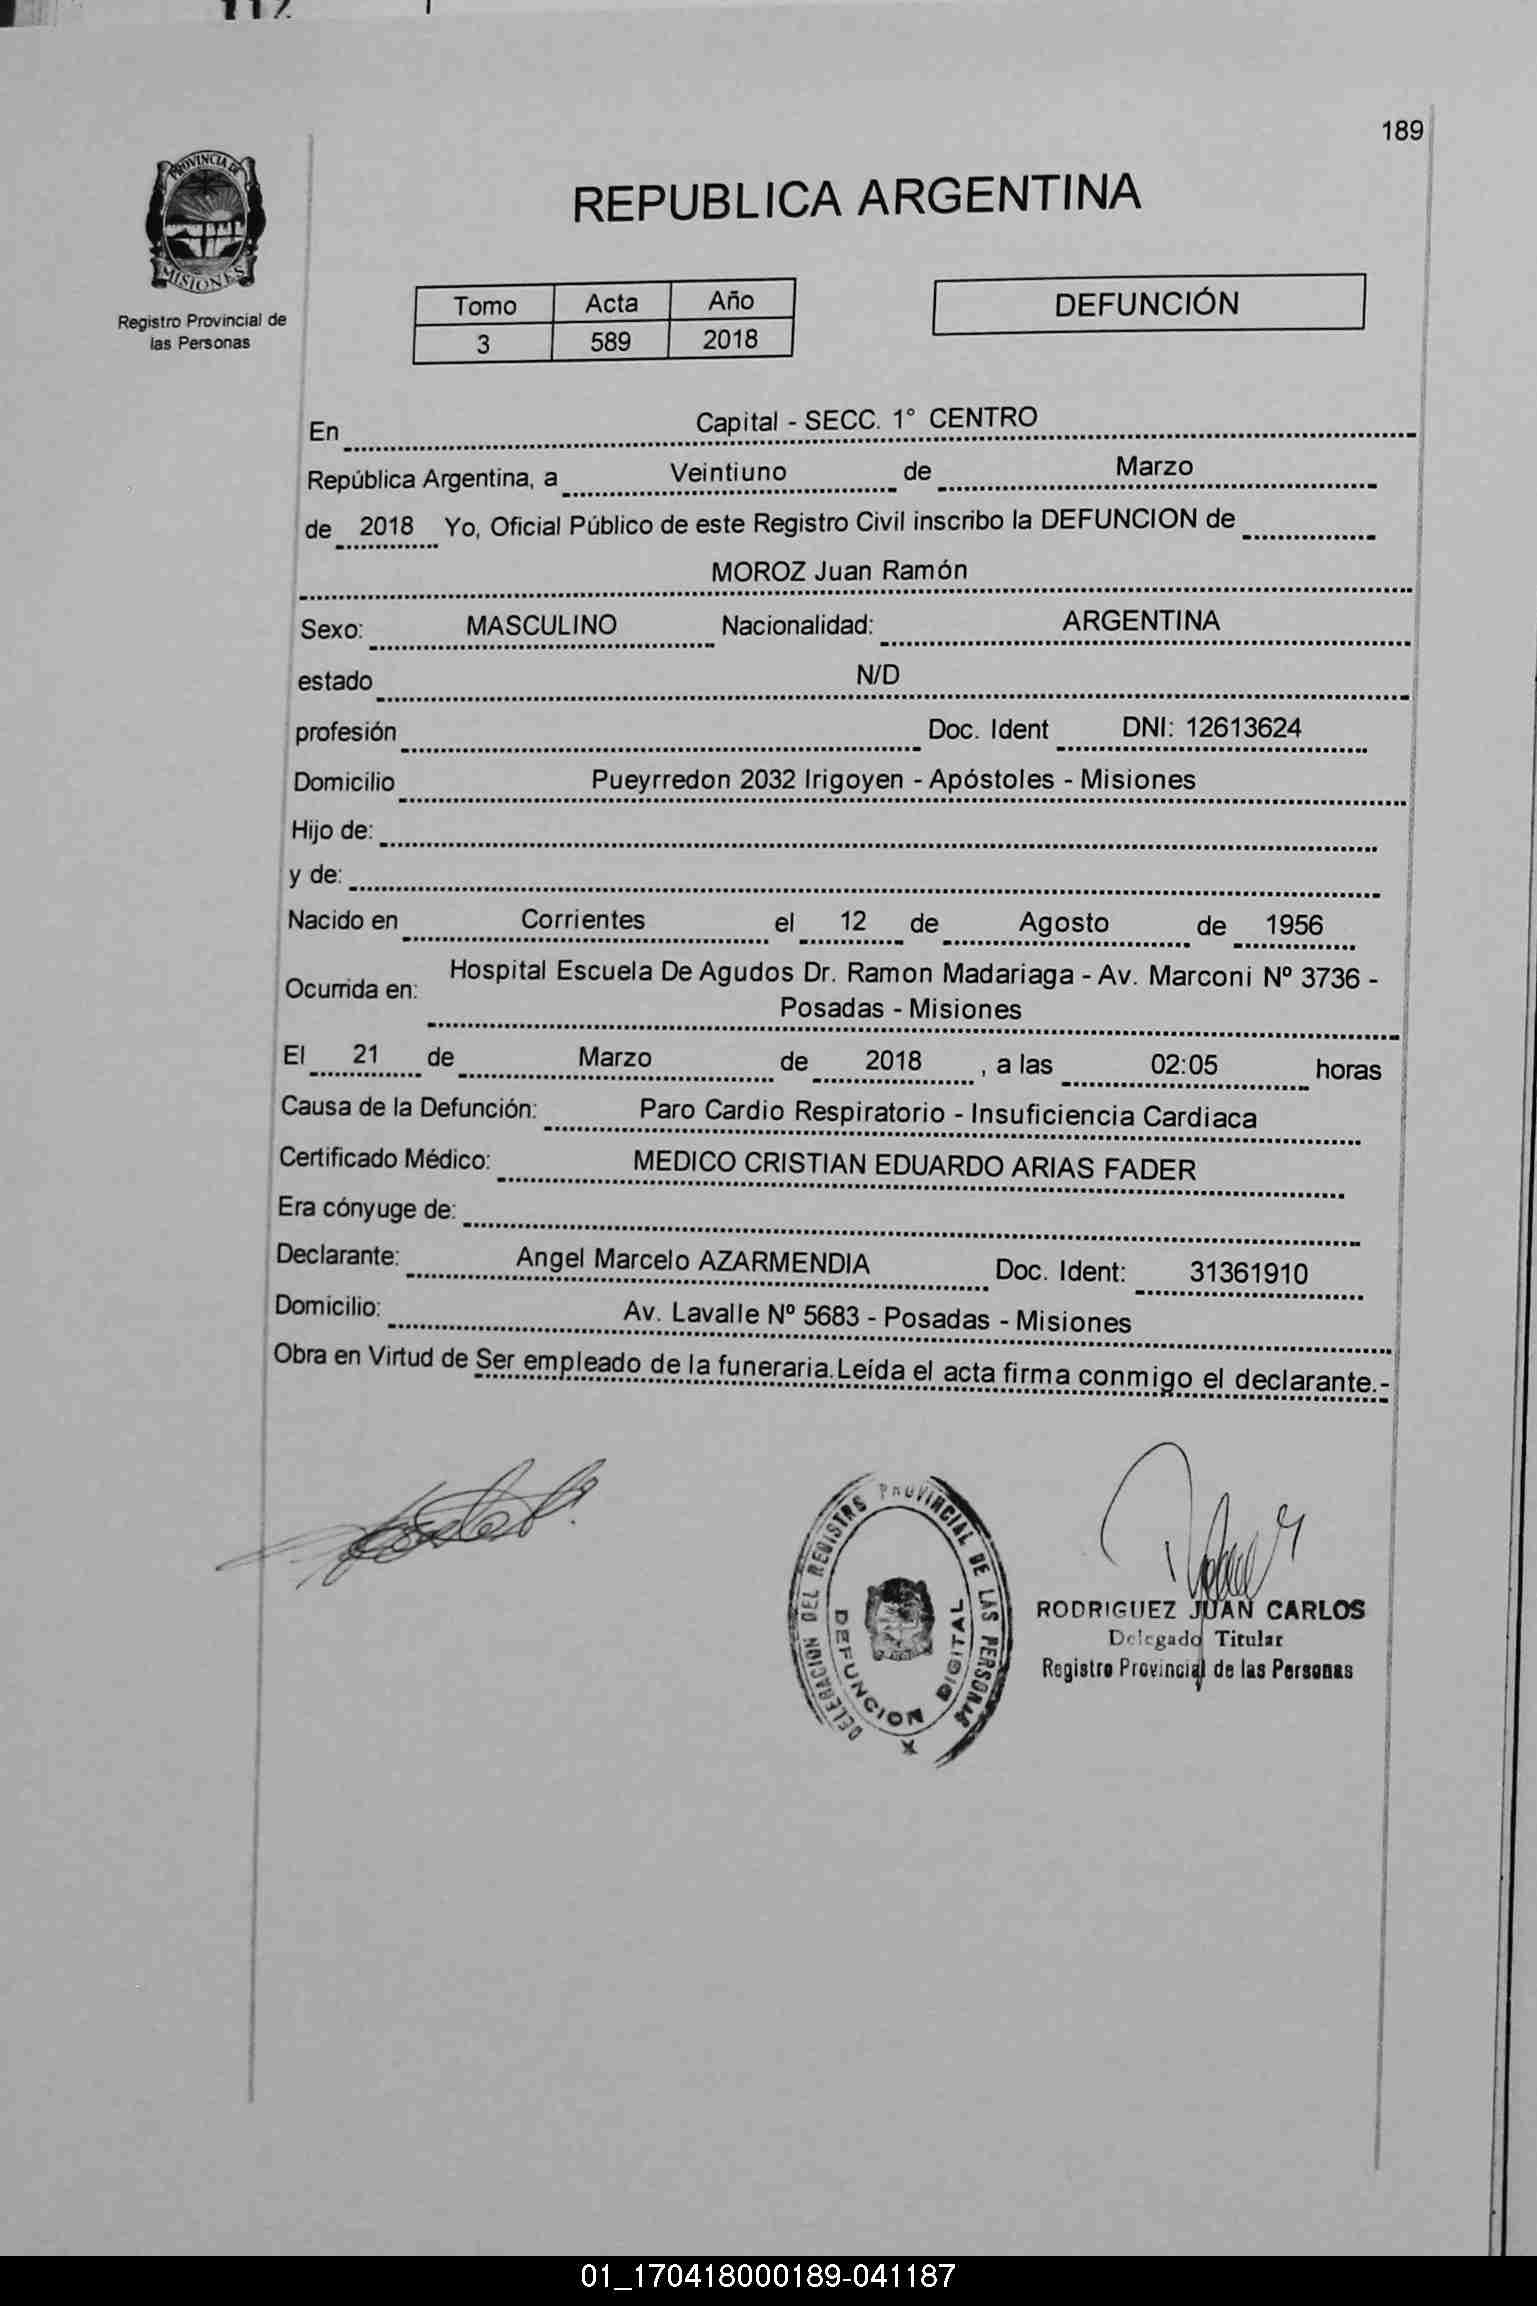 189
PROVINCIA DE
MISIONES
Registro Provincial de
las Personas
REPUBLICA ARGENTINA
Tomo Acta Año
3 589 2018
DEFUNCIÓN
En Capital - SECC. 1° CENTRO
República Argentina, a Veintiuno de Marzo
de 2018 Yo, Oficial Público de este Registro Civil inscribo la DEFUNCION de
MOROZ Juan Ramón
Sexo: MASCULINO Nacionalidad: ARGENTINA
estado N/D
profesión Doc. Ident DNI: 12613624
Domicilio Pueyrredon 2032 Irigoyen - Apóstoles - Misiones
Hijo de:
y de:
Nacido en Corrientes el 12 de Agosto de 1956
Ocurrida en: Hospital Escuela De Agudos Dr. Ramon Madariaga - Av. Marconi Nº 3736 -
Posadas - Misiones
El 21 de Marzo de 2018 , a las 02:05 horas
Causa de la Defunción: Paro Cardio Respiratorio - Insuficiencia Cardiaca
Certificado Médico: MEDICO CRISTIAN EDUARDO ARIAS FADER
Era cónyuge de:
Declarante: Angel Marcelo AZARMENDIA Doc. Ident: 31361910
Domicilio: Av. Lavalle Nº 5683 - Posadas - Misiones
Obra en Virtud de Ser empleado de la funeraria.Leída el acta firma conmigo el declarante.-
DELEGACION DEL REGISTRO PROVINCIAL DE LAS PERSONAS
DEFUNCION DIGITAL
RODRIGUEZ JUAN CARLOS
Delegado Titular
Registro Provincial de las Personas
01_170418000189-041187